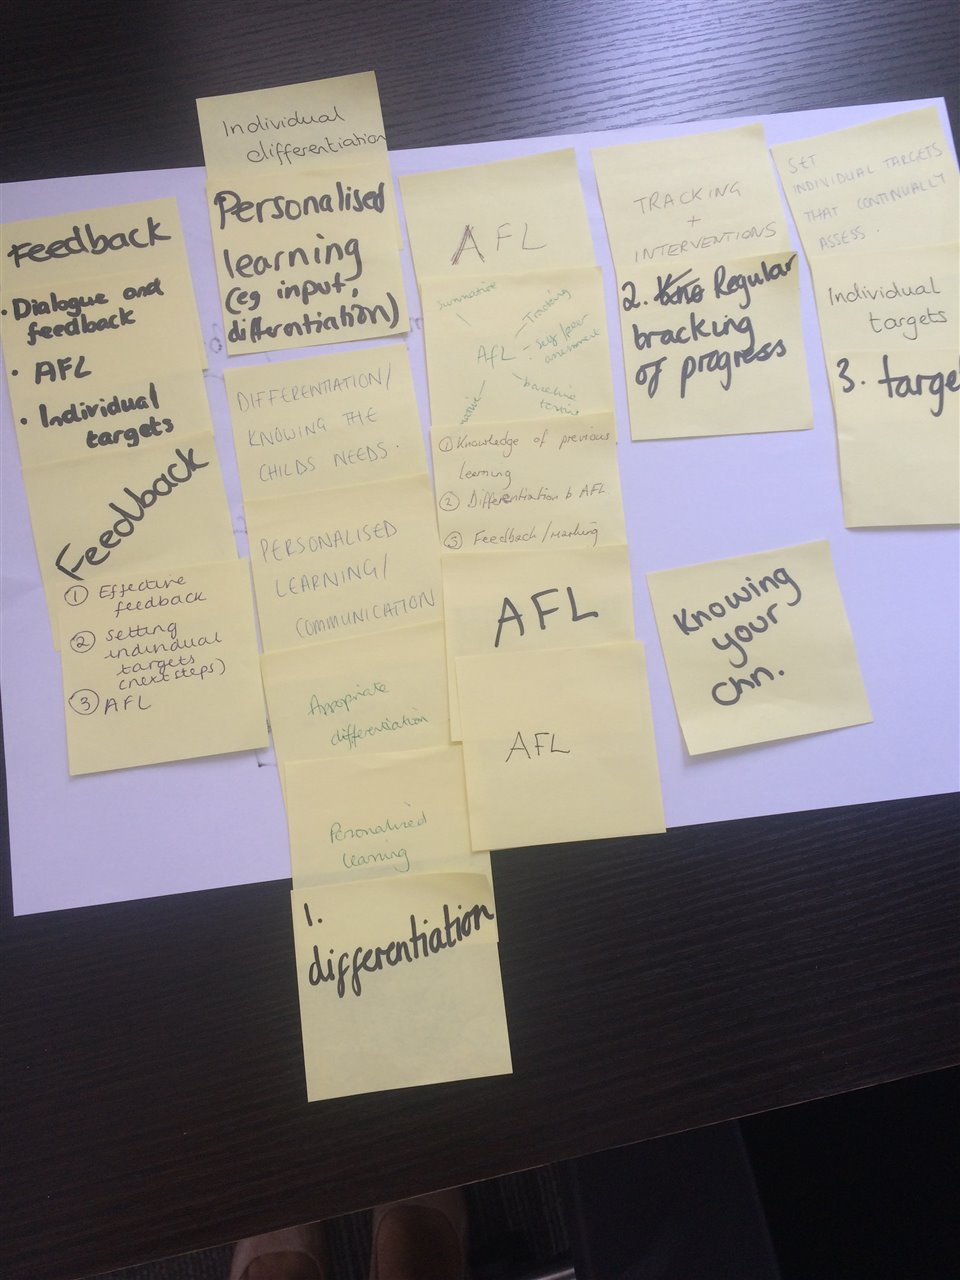 Feedback
• Dialogue and
feedback
• AFL
• Individual
targets
Feedback
① Effective
feedback
② Setting
individual
targets
(next steps)
③ AFL
Individual
differentiation
Personalised
learning
(eg input,
differentiation)
DIFFERENTIATION/
KNOWING THE
CHILDS NEEDS.
PERSONALISED
LEARNING/
COMMUNICATION
Appropriate
differentiation
Personalised
learning
1.
differentiation
AFL
Summative
Tracking
AfL - self/peer
assessment
baseline
① Knowledge of previous
learning
② Differentiation & AFL
③ Feedback/Marking
AFL
AFL
TRACKING
+
INTERVENTIONS
2. Regular
tracking
of progress
Knowing
your
chn.
SET
INDIVIDUAL TARGETS
THAT CONTINUALLY
ASSESS.
Individual
targets
3. targe